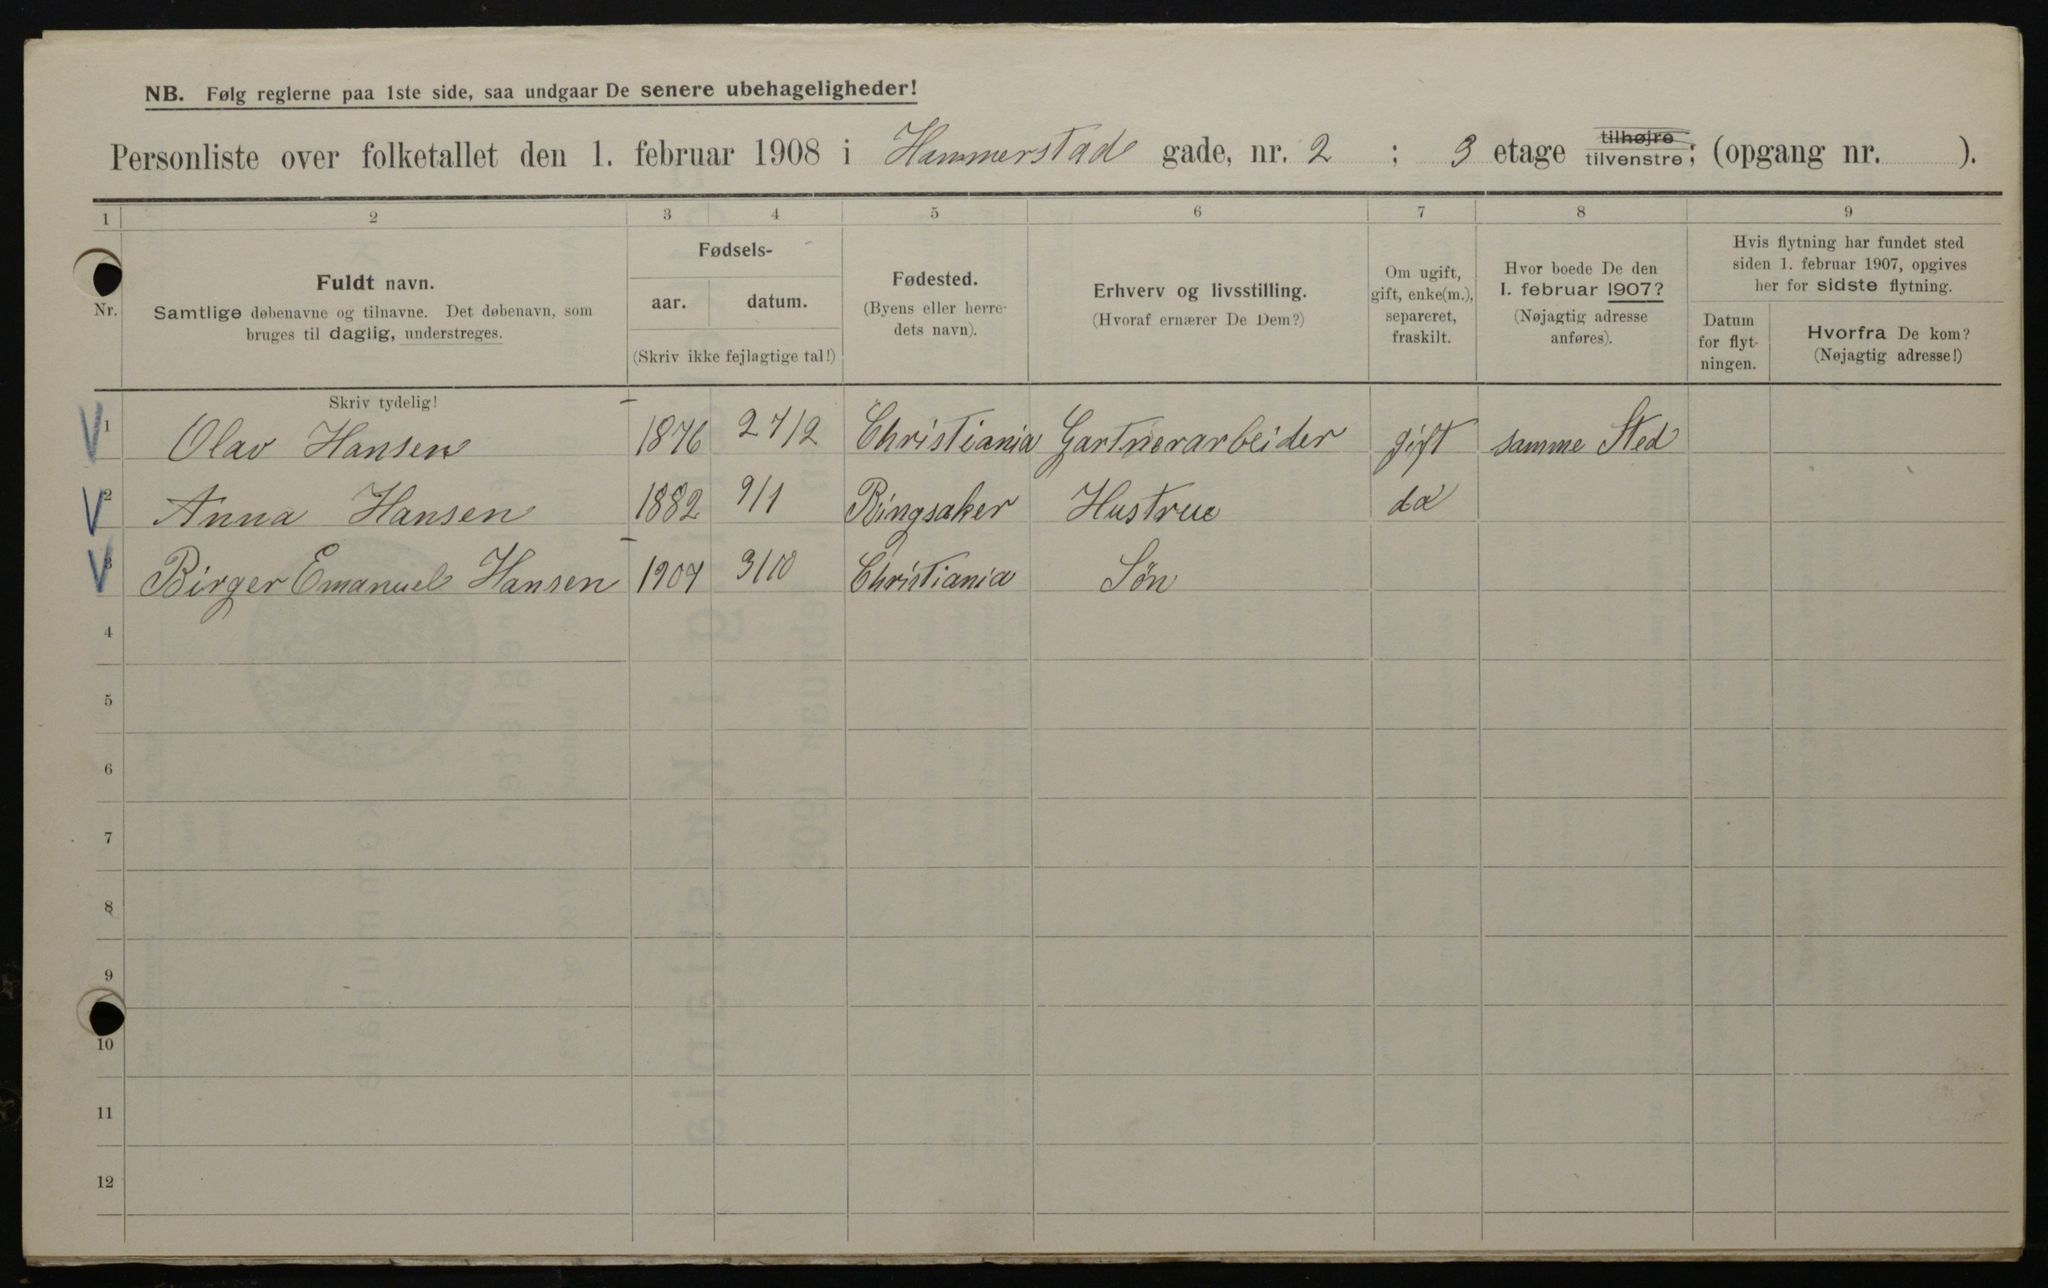 NB. Følg reglerne paa 1ste side, saa undgaar De senere ubehageligheder!
Personliste over folketallet den 1. februar 1908 i Hammerstads gade, nr. 2 ; 3 etage tilhøjre tilvenstre; (opgang nr. ).
1 2 3 4 5 6 7 8 9
Nr.
Fuldt navn.
Samtlige døbenavne og tilnavne. Det døbenavn, som
bruges til daglig, understreges.
Skriv tydelig!
Fødsels-
aar. datum.
(Skriv ikke fejlagtige tal!)
Fødested.
(Byens eller herre-
dets navn).
Erhverv og livsstilling.
(Hvoraf ernærer De Dem?)
Om ugift,
gift, enke(m.),
separeret,
fraskilt.
Hvor boede De den
1. februar 1907?
(Nøjagtig adresse
anføres).
Hvis flytning har fundet sted
siden 1. februar 1907, opgives
her for sidste flytning.
Datum
for flyt-
ningen.
Hvorfra De kom?
(Nøjagtig adresse!)
1 Olav Hansen 1876 27/2 Christiania Gartnerarbeider gift samme Sted
2 Anna Hansen 1882 9/1 Ringsaker Hustrue do
3 Birger Emanuel Hansen 1907 3/10 Christiania Søn
4
5
6
7
8
9
10
11
12